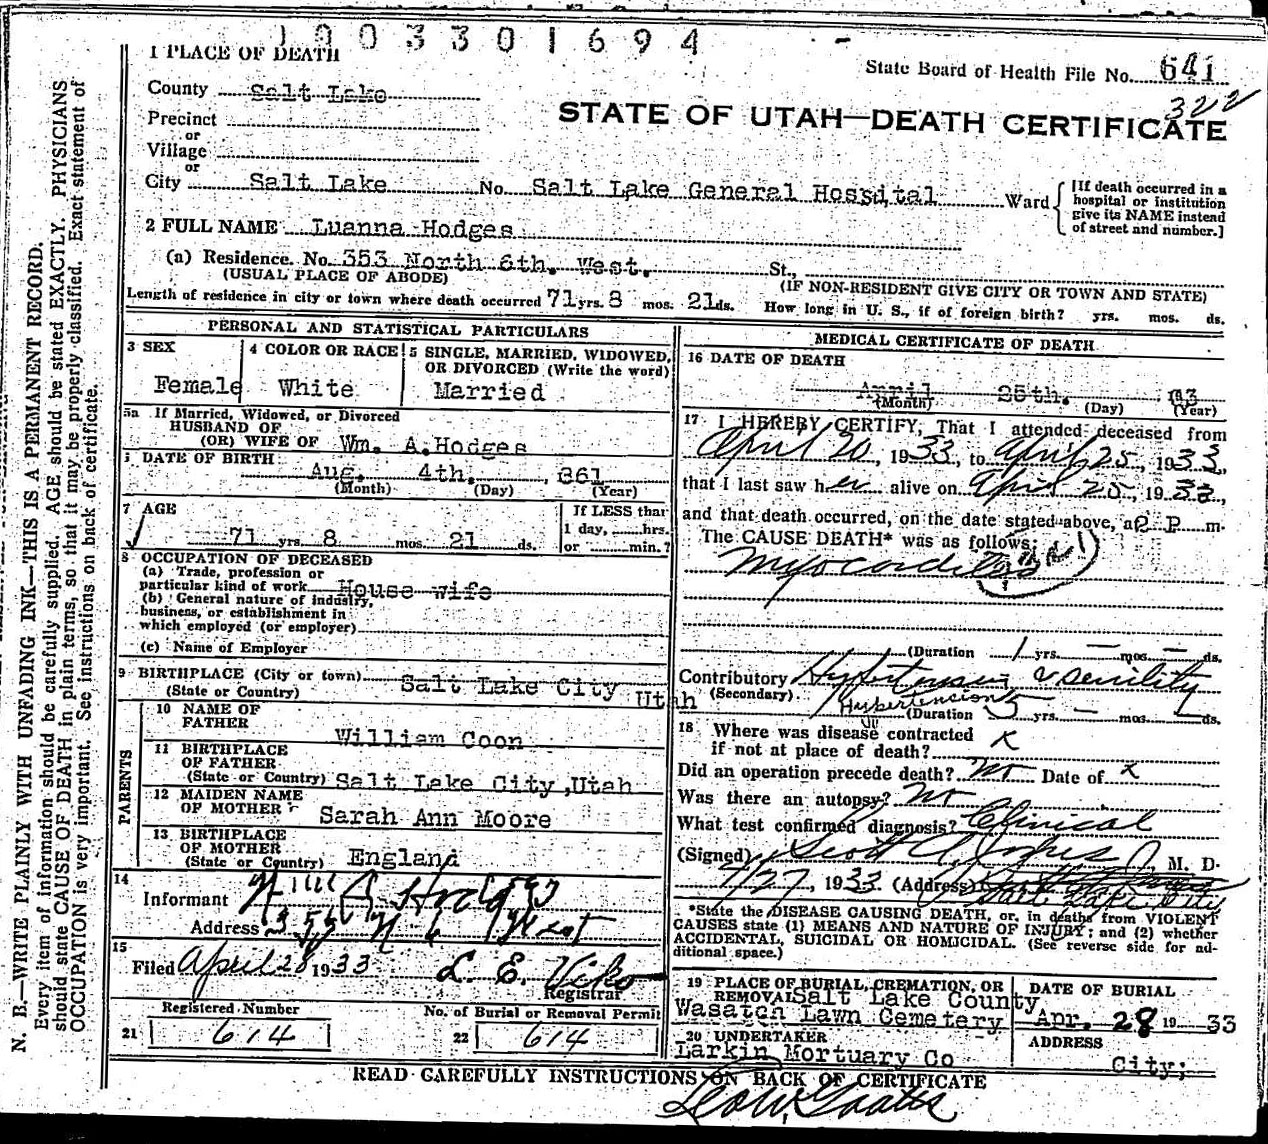 1003301694
1 PLACE OF DEATH
State Board of Health File No. 641
322
County Salt Lake
STATE OF UTAH—DEATH CERTIFICATE
Precinct
or
Village
or
City Salt Lake No. Salt Lake General Hospital Ward
[If death occurred in a hospital or institution give its NAME instead of street and number.]
2 FULL NAME Luanna Hodges
(a) Residence. No. 353 North 6th. West. St.,
(USUAL PLACE OF ABODE) (IF NON-RESIDENT GIVE CITY OR TOWN AND STATE)
Length of residence in city or town where death occurred 71 yrs. 8 mos. 21 ds. How long in U. S., if of foreign birth? yrs. mos. ds.
PERSONAL AND STATISTICAL PARTICULARS
3 SEX
Female
4 COLOR OR RACE
White
5 SINGLE, MARRIED, WIDOWED, OR DIVORCED (Write the word)
Married
5a If Married, Widowed, or Divorced
HUSBAND OF
(OR) WIFE OF Wm. A. Hodges
DATE OF BIRTH
Aug. 4th. , 861
(Month) (Day) (Year)
7 AGE
71 yrs. 8 mos. 21 ds.
If LESS than
1 day, hrs.
or min.?
8 OCCUPATION OF DECEASED
(a) Trade, profession or
particular kind of work House wife
(b) General nature of industry,
business, or establishment in
which employed (or employer)
(c) Name of Employer
9 BIRTHPLACE (City or town) Salt Lake City
(State or Country) Utah
PARENTS
10 NAME OF
FATHER
William Coon
11 BIRTHPLACE
OF FATHER
(State or Country) Salt Lake City, Utah
12 MAIDEN NAME
OF MOTHER
Sarah Ann Moore
13 BIRTHPLACE
OF MOTHER
(State or Country) England
14
Informant Will A Hodges
Address 353 N 6 West
15
Filed April 28 1933 L. E. Viko
Registrar
Registered Number No. of Burial or Removal Permit
21 614 22 614
MEDICAL CERTIFICATE OF DEATH
16 DATE OF DEATH
April 25th.
(Month) (Day) (Year)
17 I HEREBY CERTIFY, That I attended deceased from
April 20, 1933, to April 25, 1933,
that I last saw her alive on April 25, 1933,
and that death occurred, on the date stated above, at 2 P m.
The CAUSE DEATH* was as follows:
Myocarditis
(Duration 1 yrs. — mos. — ds.
Contributory Hypertension & senility
(Secondary) Hypertension
(Duration 5 yrs. — mos. — ds.
18 Where was disease contracted
if not at place of death? x
Did an operation precede death? no Date of x
Was there an autopsy? no
What test confirmed diagnosis? Clinical
(Signed) Scott M. D.
4/27, 1933 (Address) Salt Lake City
*State the DISEASE CAUSING DEATH, or, in deaths from VIOLENT
CAUSES state (1) MEANS AND NATURE OF INJURY; and (2) whether
ACCIDENTAL, SUICIDAL OR HOMICIDAL. (See reverse side for ad-
ditional space.)
19 PLACE OF BURIAL, CREMATION, OR
REMOVAL Salt Lake County
Wasatch Lawn Cemetery
DATE OF BURIAL
Apr. 28 19 33
20 UNDERTAKER
Larkin Mortuary Co
ADDRESS
City;
READ CAREFULLY INSTRUCTIONS ON BACK OF CERTIFICATE
N. B.—WRITE PLAINLY WITH UNFADING INK—THIS IS A PERMANENT RECORD.
Every item of information should be carefully supplied. AGE should be stated EXACTLY. PHYSICIANS
should state CAUSE OF DEATH in plain terms, so that it may be properly classified. Exact statement of
OCCUPATION is very important. See instructions on back of certificate.